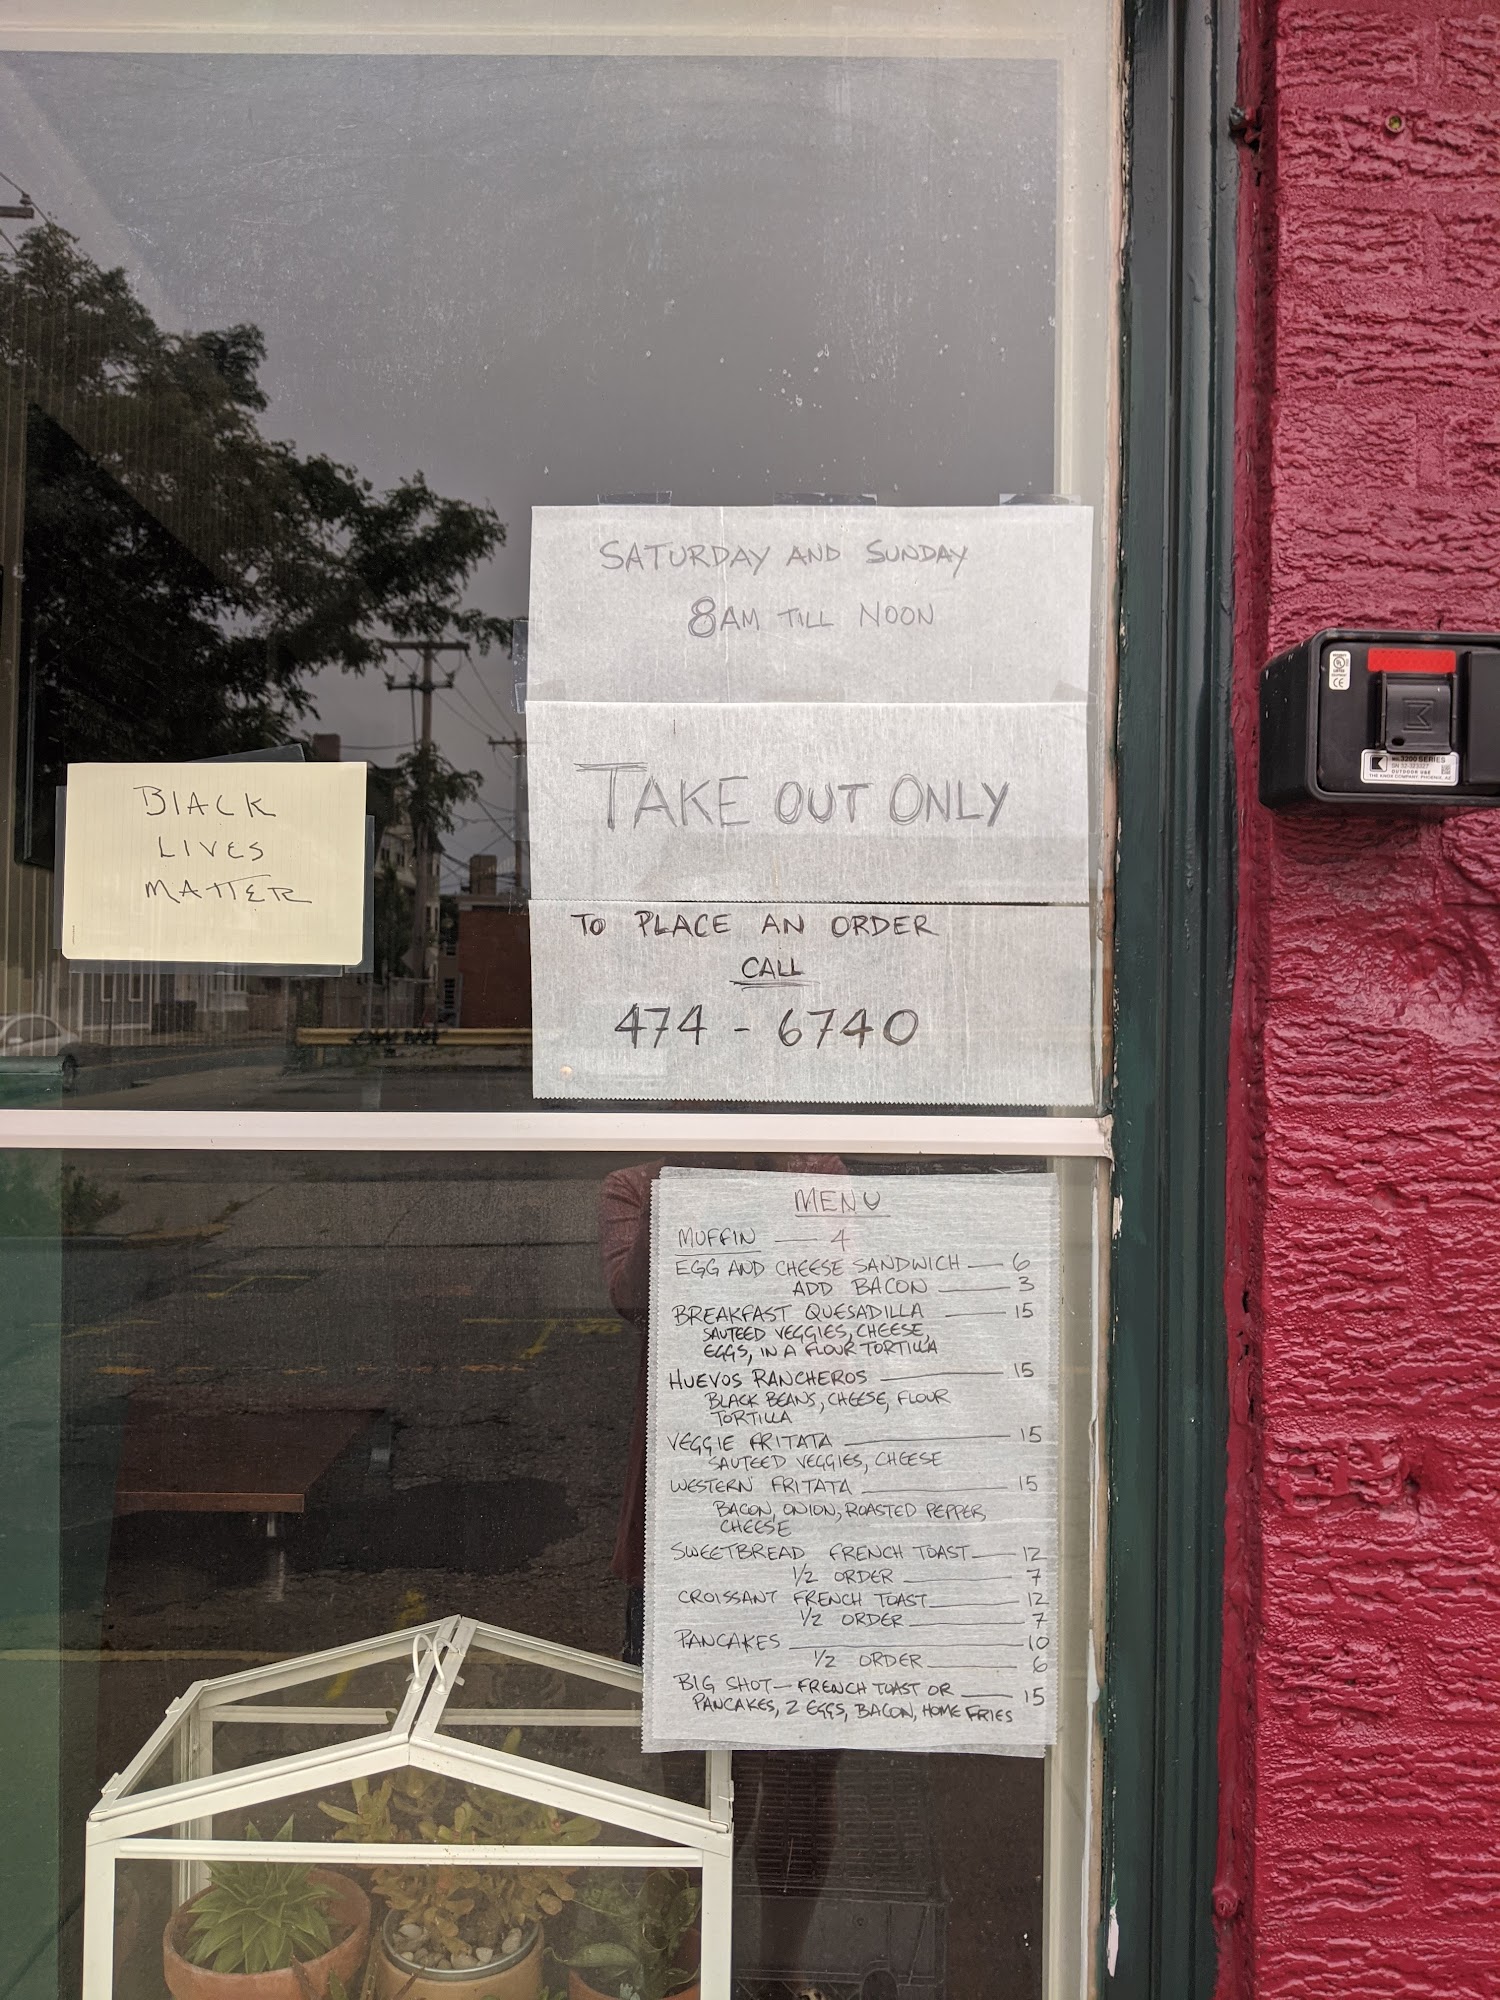 SATURDAY AND SUNDAY
8AM TILL NOON
TAKE OUT ONLY
TO PLACE AN ORDER
CALL
474 - 6740
BLACK
LIVES
MATTER
MENU
MUFFIN — 4
EGG AND CHEESE SANDWICH — 6
ADD BACON — 3
BREAKFAST QUESADILLA — 15
SAUTEED VEGGIES, CHEESE,
EGGS, IN A FLOUR TORTILLA
HUEVOS RANCHEROS — 15
BLACK BEANS, CHEESE, FLOUR
TORTILLA
VEGGIE FRITATA — 15
SAUTEED VEGGIES, CHEESE
WESTERN FRITATA — 15
BACON, ONION, ROASTED PEPPER
CHEESE
SWEETBREAD FRENCH TOAST — 12
1/2 ORDER — 7
CROISSANT FRENCH TOAST — 12
1/2 ORDER — 7
PANCAKES — 10
1/2 ORDER — 6
BIG SHOT — FRENCH TOAST OR — 15
PANCAKES, 2 EGGS, BACON, HOME FRIES
3200 SERIES
OUTDOOR USE
THE KNOX COMPANY, PHOENIX, AZ